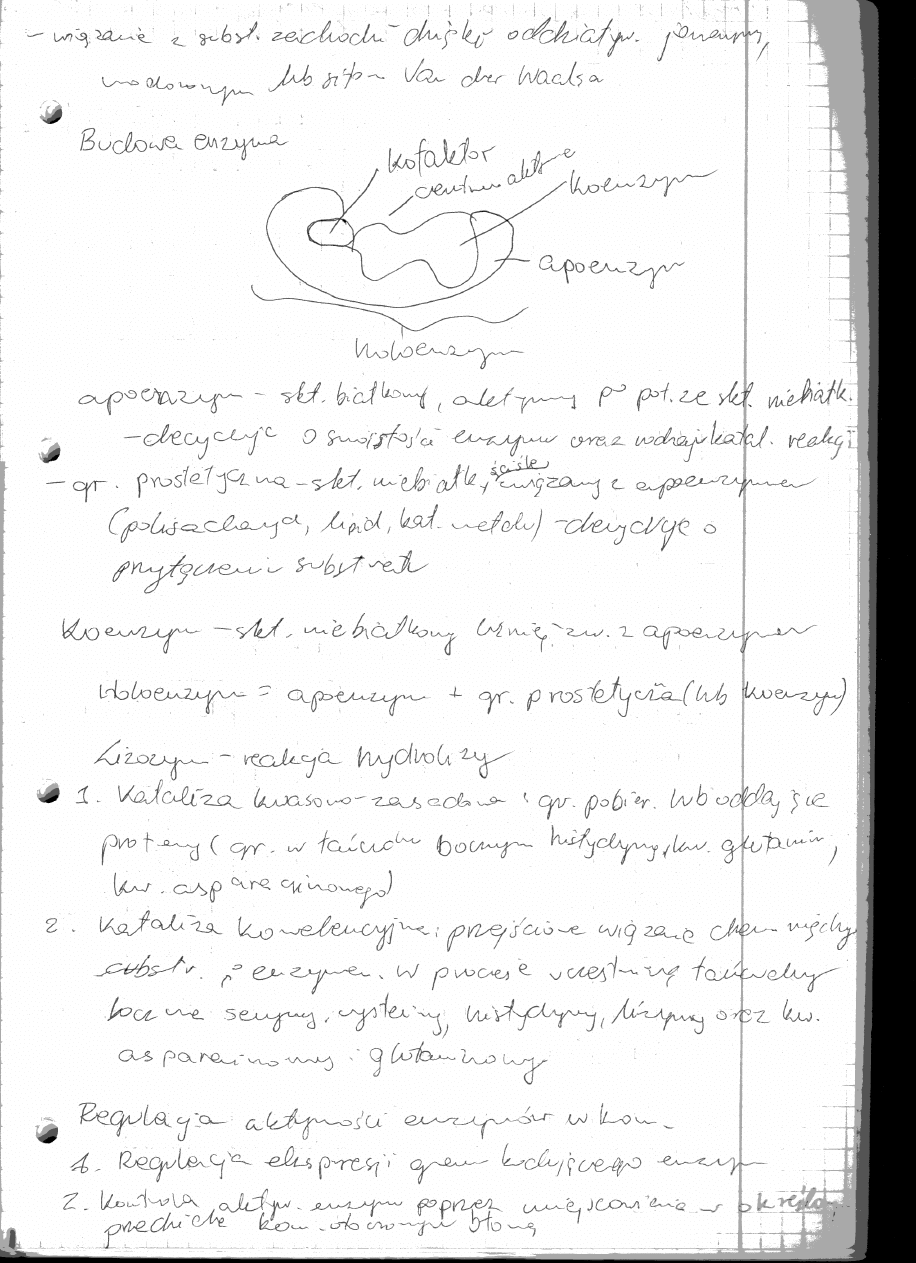 - wiązanie z subst. zachodzi dzięki oddziaływ. jonowym,
wodorowym lub siłom Van der Waalsa
Budowa enzymu
kofaktor
centrum aktywne
koenzym
apoenzym
holoenzym
apoenzym - skł. białkowy, aktywny po poł. ze skł. niebiałk.
- decyduje o swoistości enzymu oraz rodzaju katal. reakcji
- gr. prostetyczna - skł. niebiałk, ściśle związany z apoenzymem
(polisacharyd, lipid, kat. metalu) - decyduje o
przyłączeniu substratu
Koenzym - skł. niebiałkowy luźniej zw. z apoenzymem
Holoenzym = apoenzym + gr. prostetyczna (lub koenzym)
Lizozym - reakcja hydrolizy
1. Kataliza kwasowo-zasadowa: gr. pobier. lub oddające
protony (gr. w łańcuchu bocznym histydyny, kw. glutamin,
kw. asparaginowego)
2. Kataliza kowalencyjna: przejściowe wiązanie chem między
substr. a enzymem. W procesie uczestniczą łańcuchy
boczne seryny, cysteiny, histydyny, lizyny oraz kw.
asparaginowy i glutaminowy
Regulacja aktywności enzymów w kom.
1. Regulacja ekspresji genu kodującego enzym
2. Kontrola aktyw. enzymu poprzez umiejscowienie w określon
przedziale kom. otoczonym błoną